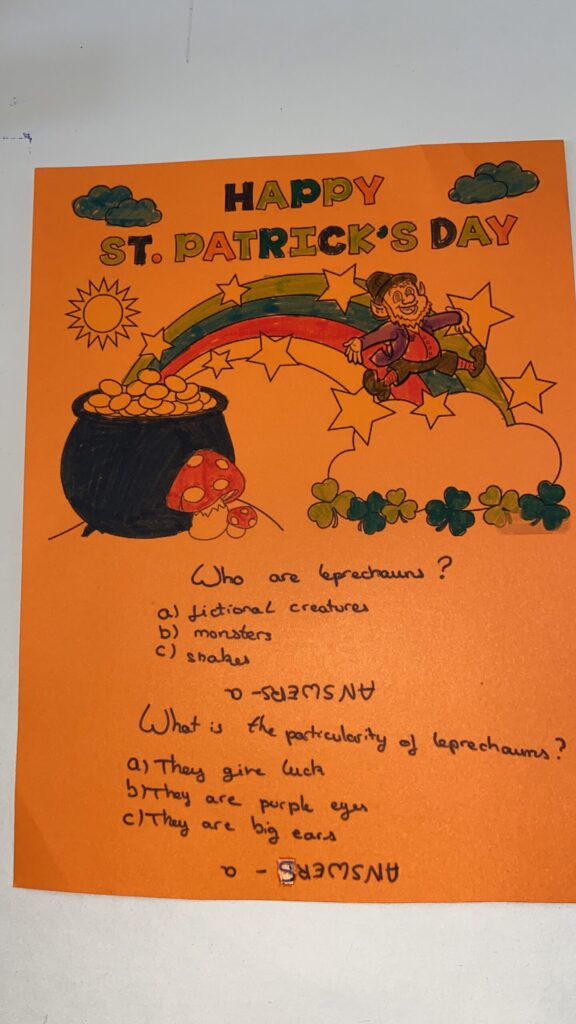 HAPPY
ST. PATRICK'S DAY
Who are leprechauns?
a) fictional creatures
b) monsters
c) snakes
ANSWERS- a
What is the particularity of leprechauns?
a) They give luck
b) They are purple eyes
c) They are big ears
ANSWERS - a